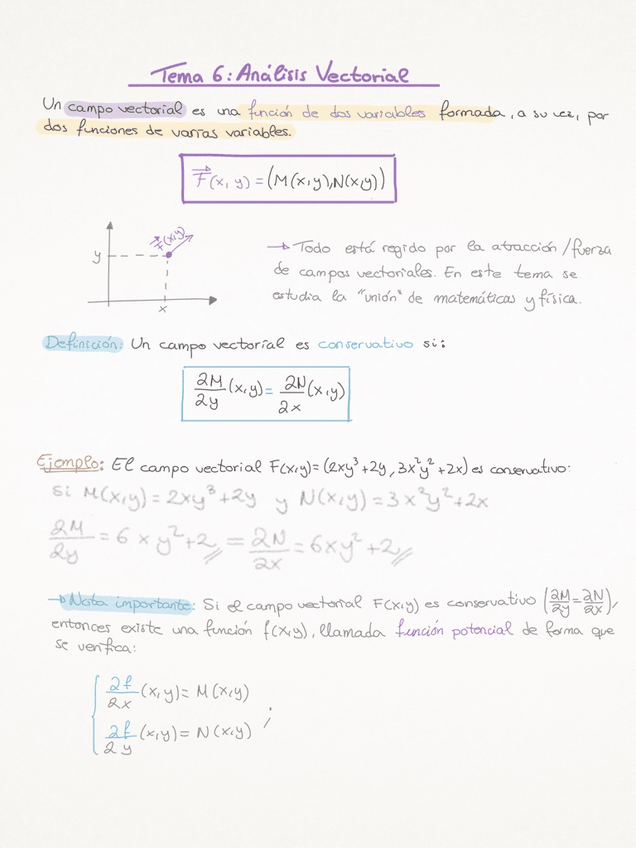 Tema 6: Análisis Vectorial
Un campo vectorial es una función de dos variables formada, a su vez, por
dos funciones de varias variables.
F⃗(x, y) = (M(x,y), N(x,y))
y
F⃗(x,y)
x
→ Todo está regido por la atracción / fuerza
de campos vectoriales. En este tema se
estudia la "unión" de matemáticas y física.
Definición: Un campo vectorial es conservativo si:
∂M/∂y (x,y) = ∂N/∂x (x,y)
Ejemplo: El campo vectorial F(x,y) = (2xy³ + 2y, 3x²y² + 2x) es conservativo:
si M(x,y) = 2xy³ + 2y y N(x,y) = 3x²y² + 2x
∂M/∂y = 6xy² + 2 // = ∂N/∂x = 6xy² + 2 //
→ Nota importante: Si el campo vectorial F(x,y) es conservativo (∂M/∂y = ∂N/∂x),
entonces existe una función f(x,y), llamada función potencial de forma que
se verifica:
∂f/∂x (x,y) = M(x,y)
∂f/∂y (x,y) = N(x,y) ;